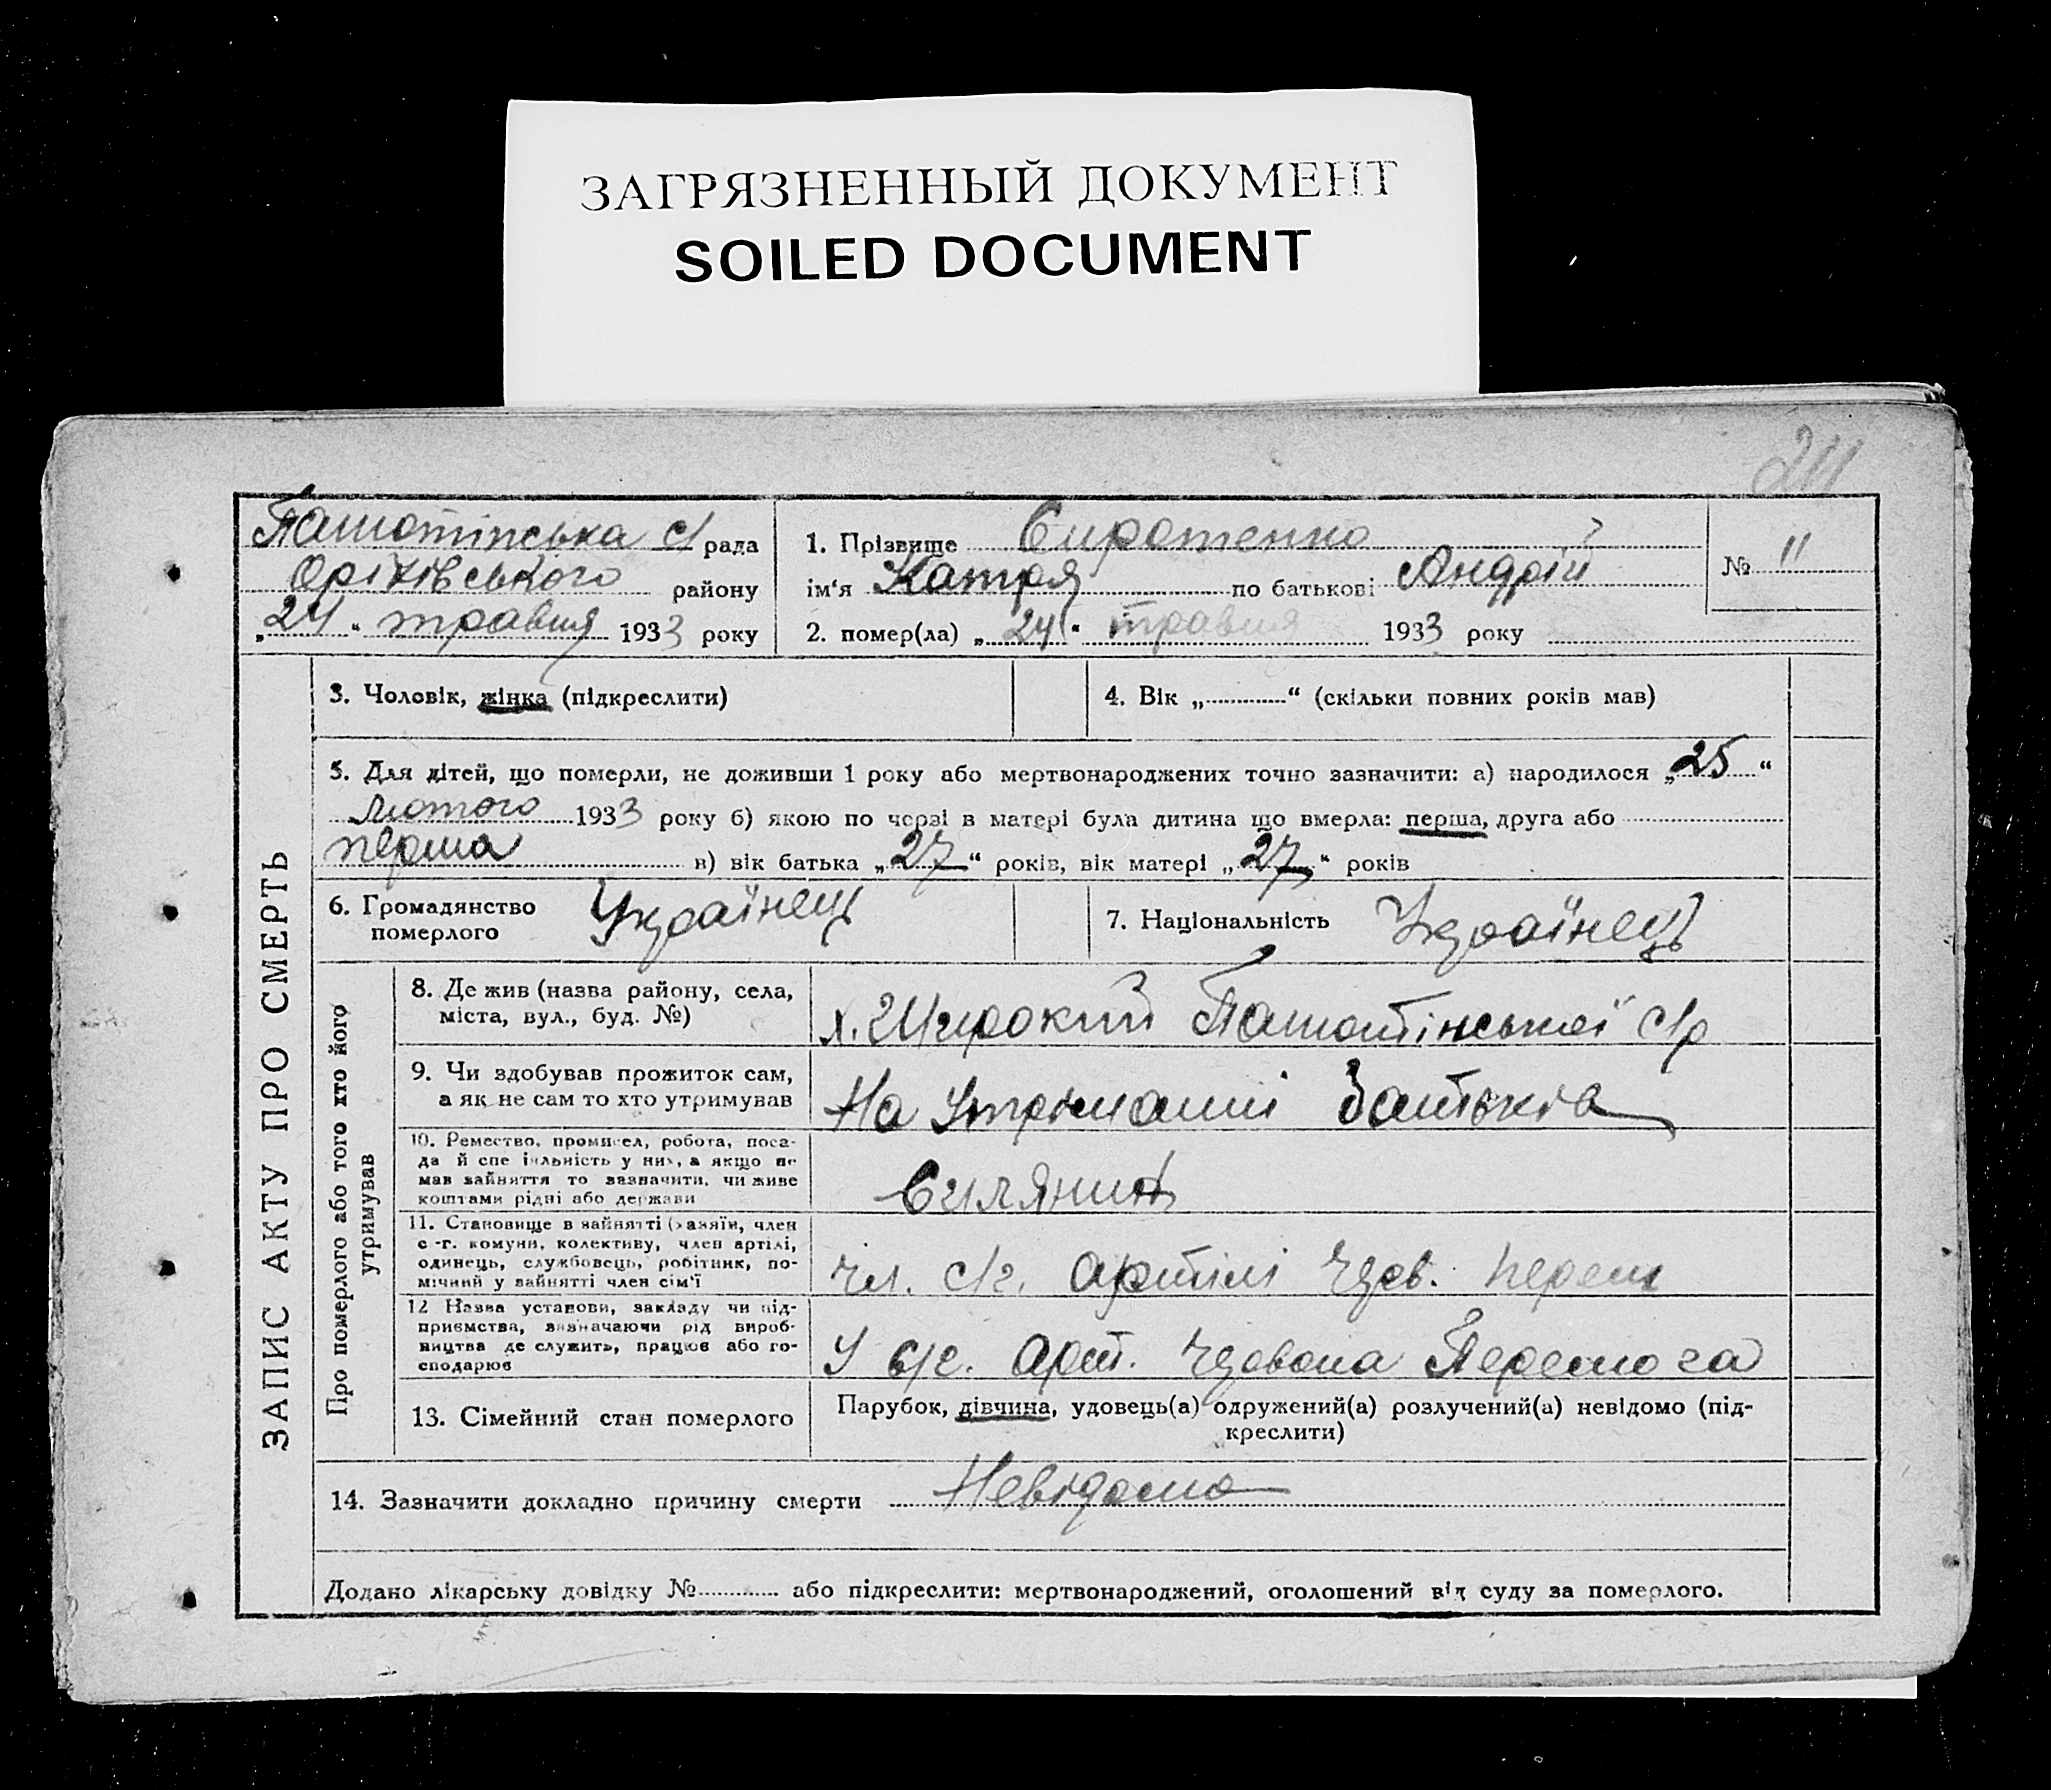 ЗАГРЯЗНЕННЫЙ ДОКУМЕНТ
SOILED DOCUMENT
211
Пашотінська с/рада
Оріхівського району
„24“ травня 1933 року
1. Прізвище Сиротенко
ім‘я Катря по батькові Андрій
№ 11
2. помер(ла) „24“ травня 1933 року
ЗАПИС АКТУ ПРО СМЕРТЬ
3. Чоловік, жінка (підкреслити)
4. Вік „............“ (скільки повних років мав)
5. Для дітей, що померли, не доживши 1 року або мертвонароджених точно зазначити: а) народилося „25“
лютого 1933 року б) якою по черзі в матері була дитина що вмерла: перша, друга або
перша в) вік батька „27“ років, вік матері „27“ років
6. Громадянство померлого Українець
7. Національність Українець
Про померлого або того хто його утримував
8. Де жив (назва району, села,
міста, вул., буд. №)
х. Широкий Пашотінської с/р
9. Чи здобував прожиток сам,
а як не сам то хто утримував
На утриманні батьків
10. Ремество, промисел, робота, поса-
да й спеціяльність у них, а якщо не
мав зайняття то зазначити, чи живе
коштами рідні або держави
Силянин
11. Становище в зайнятті (хазяїн, член
с.-г. комуни, колективу, член артілі,
одинець, службовець, робітник, по-
мічний у зайнятті член сім'ї
Чл. с/г. артілі Черв. Перем
12 Назва установи, закладу чи під-
приємства, зазначаючи рід вироб-
ництва де служить, працює або го-
сподарює
У с/г. арт. Червона Перемога
13. Сімейний стан померлого
Парубок, дівчина, удовець(а) одружений(а) розлучений(а) невідомо (під-
креслити)
14. Зазначити докладно причину смерти Невідомо
Додано лікарську довідку №............ або підкреслити: мертвонароджений, оголошений від суду за померлого.